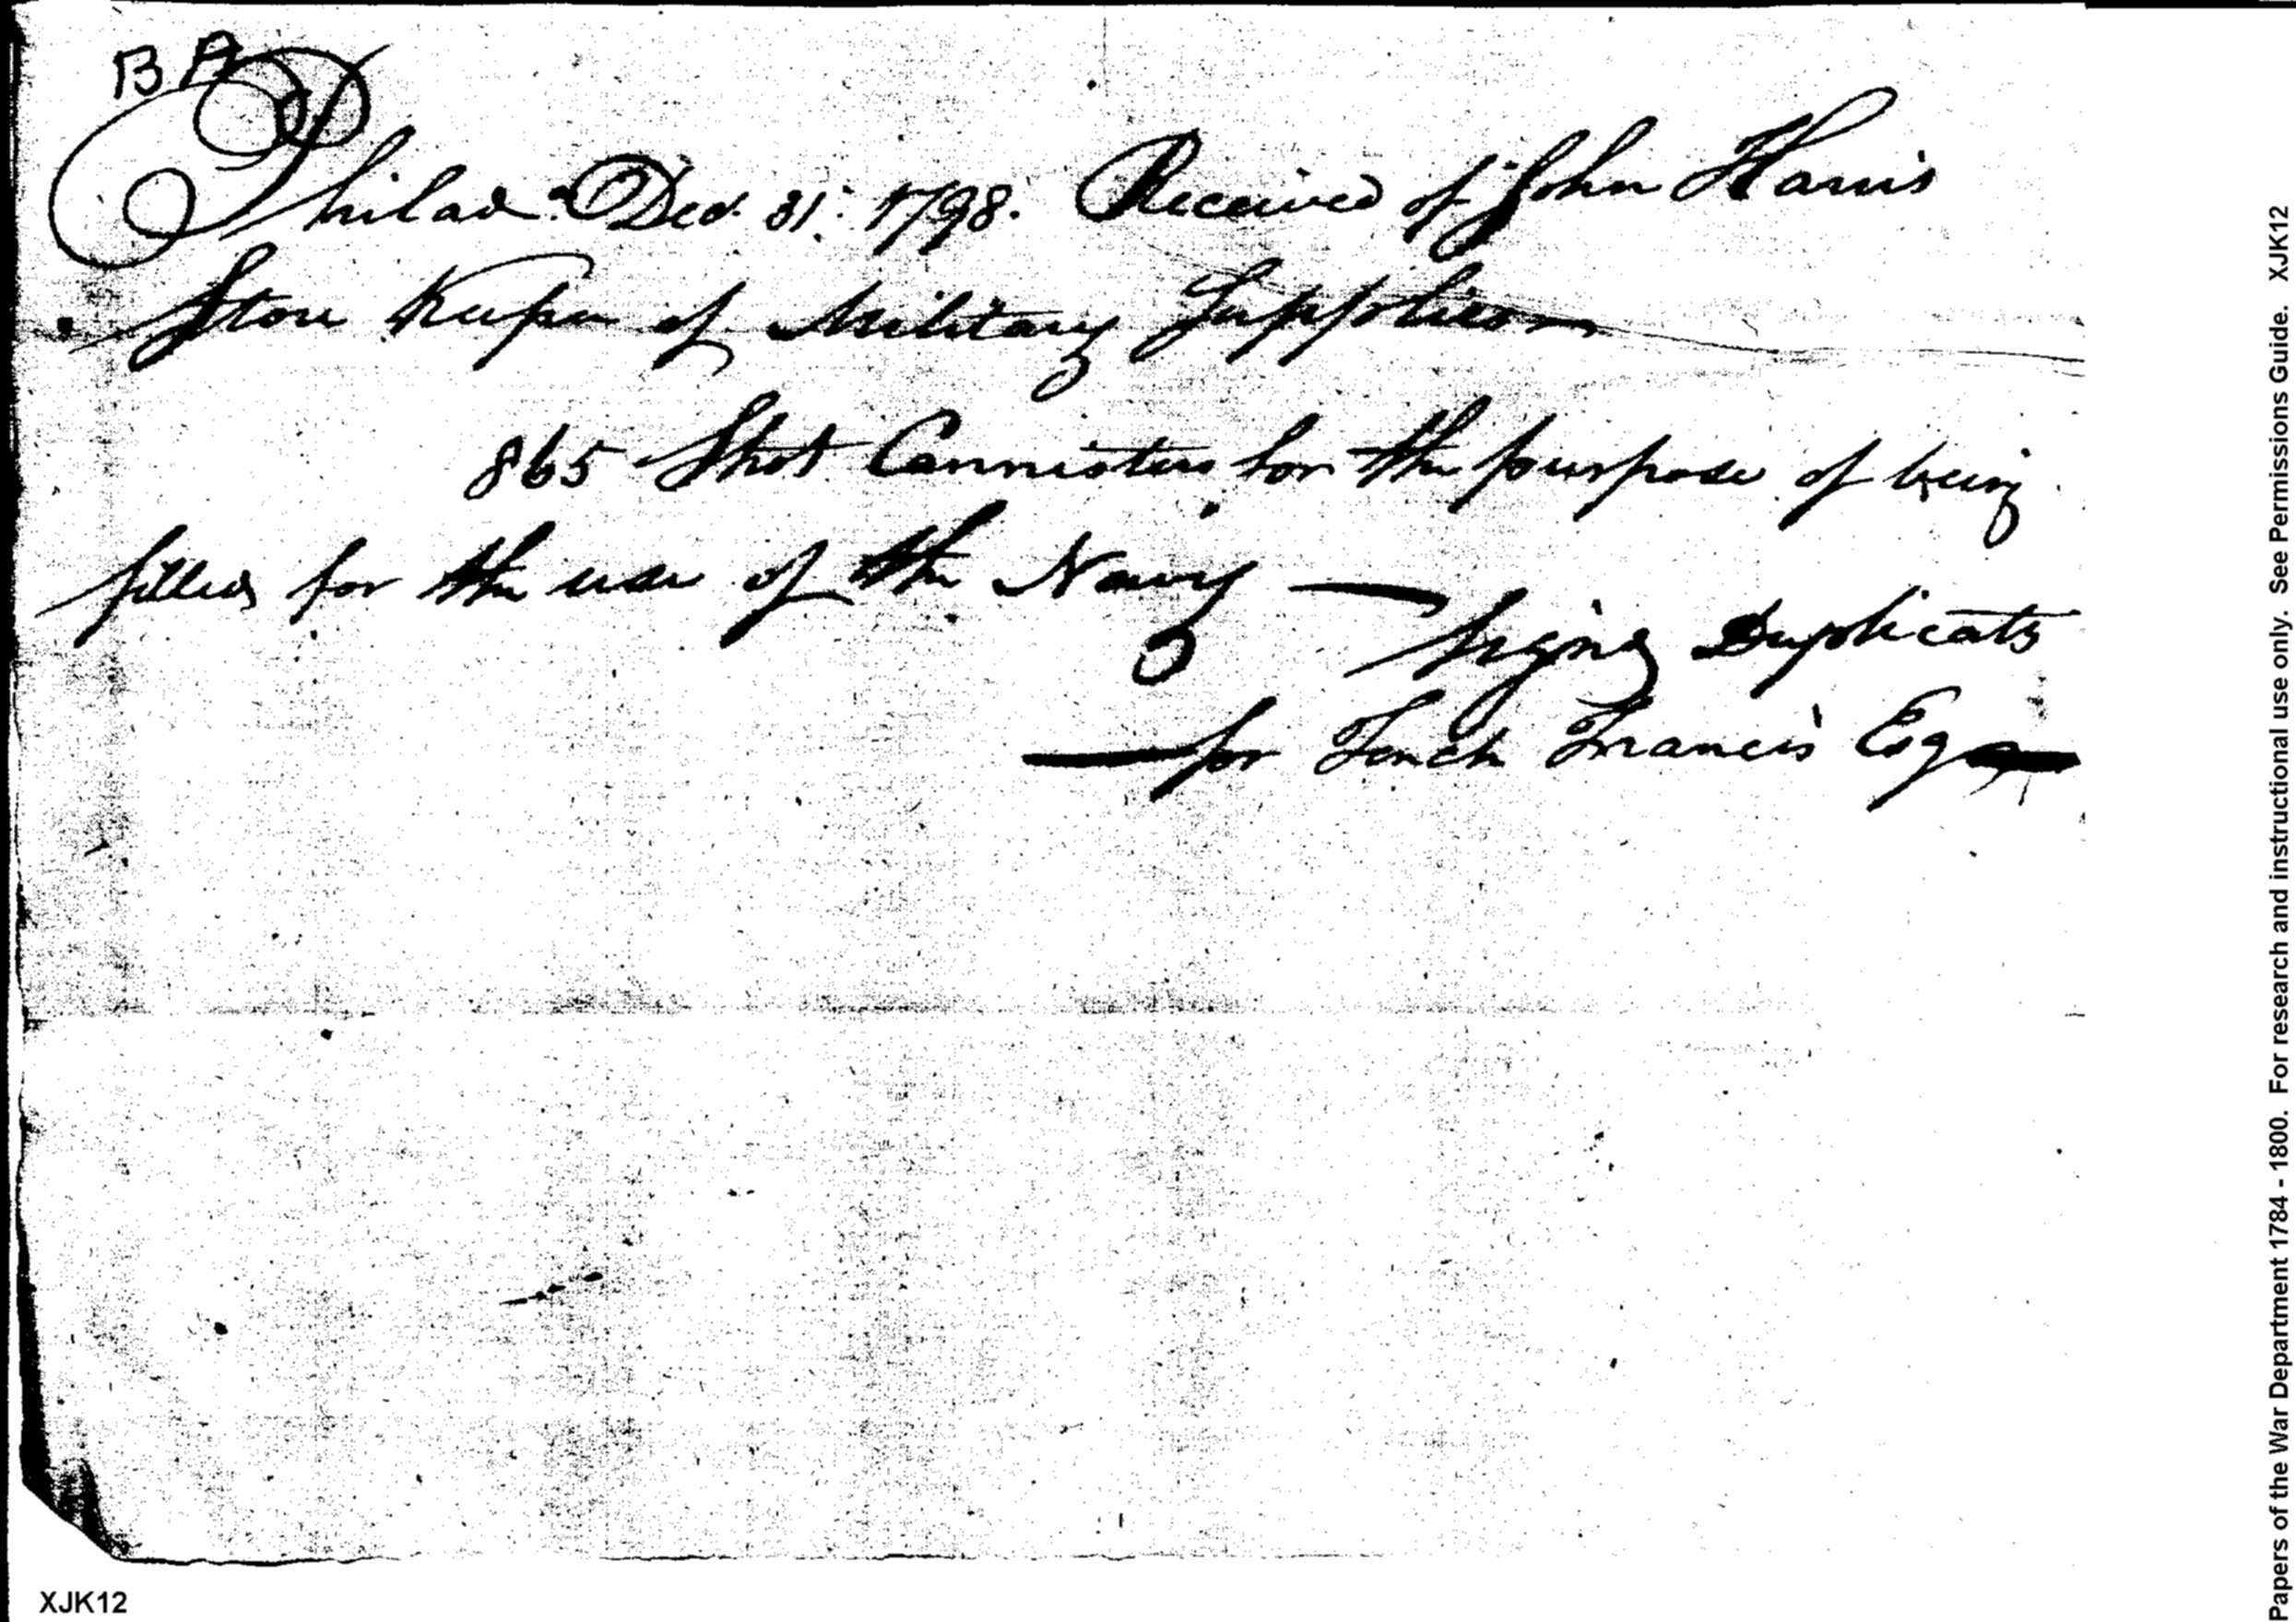 BA
Philada. Decr. 31. 1798. Received of John Harris
Store Keeper of Military Supplies
865 Shot Cannisters for the purpose of being
filled for the use of the Navy —
Signed Duplicats
— for Tench Francis Esq
XJK12
Papers of the War Department 1784 - 1800. For research and instructional use only. See Permissions Guide. XJK12